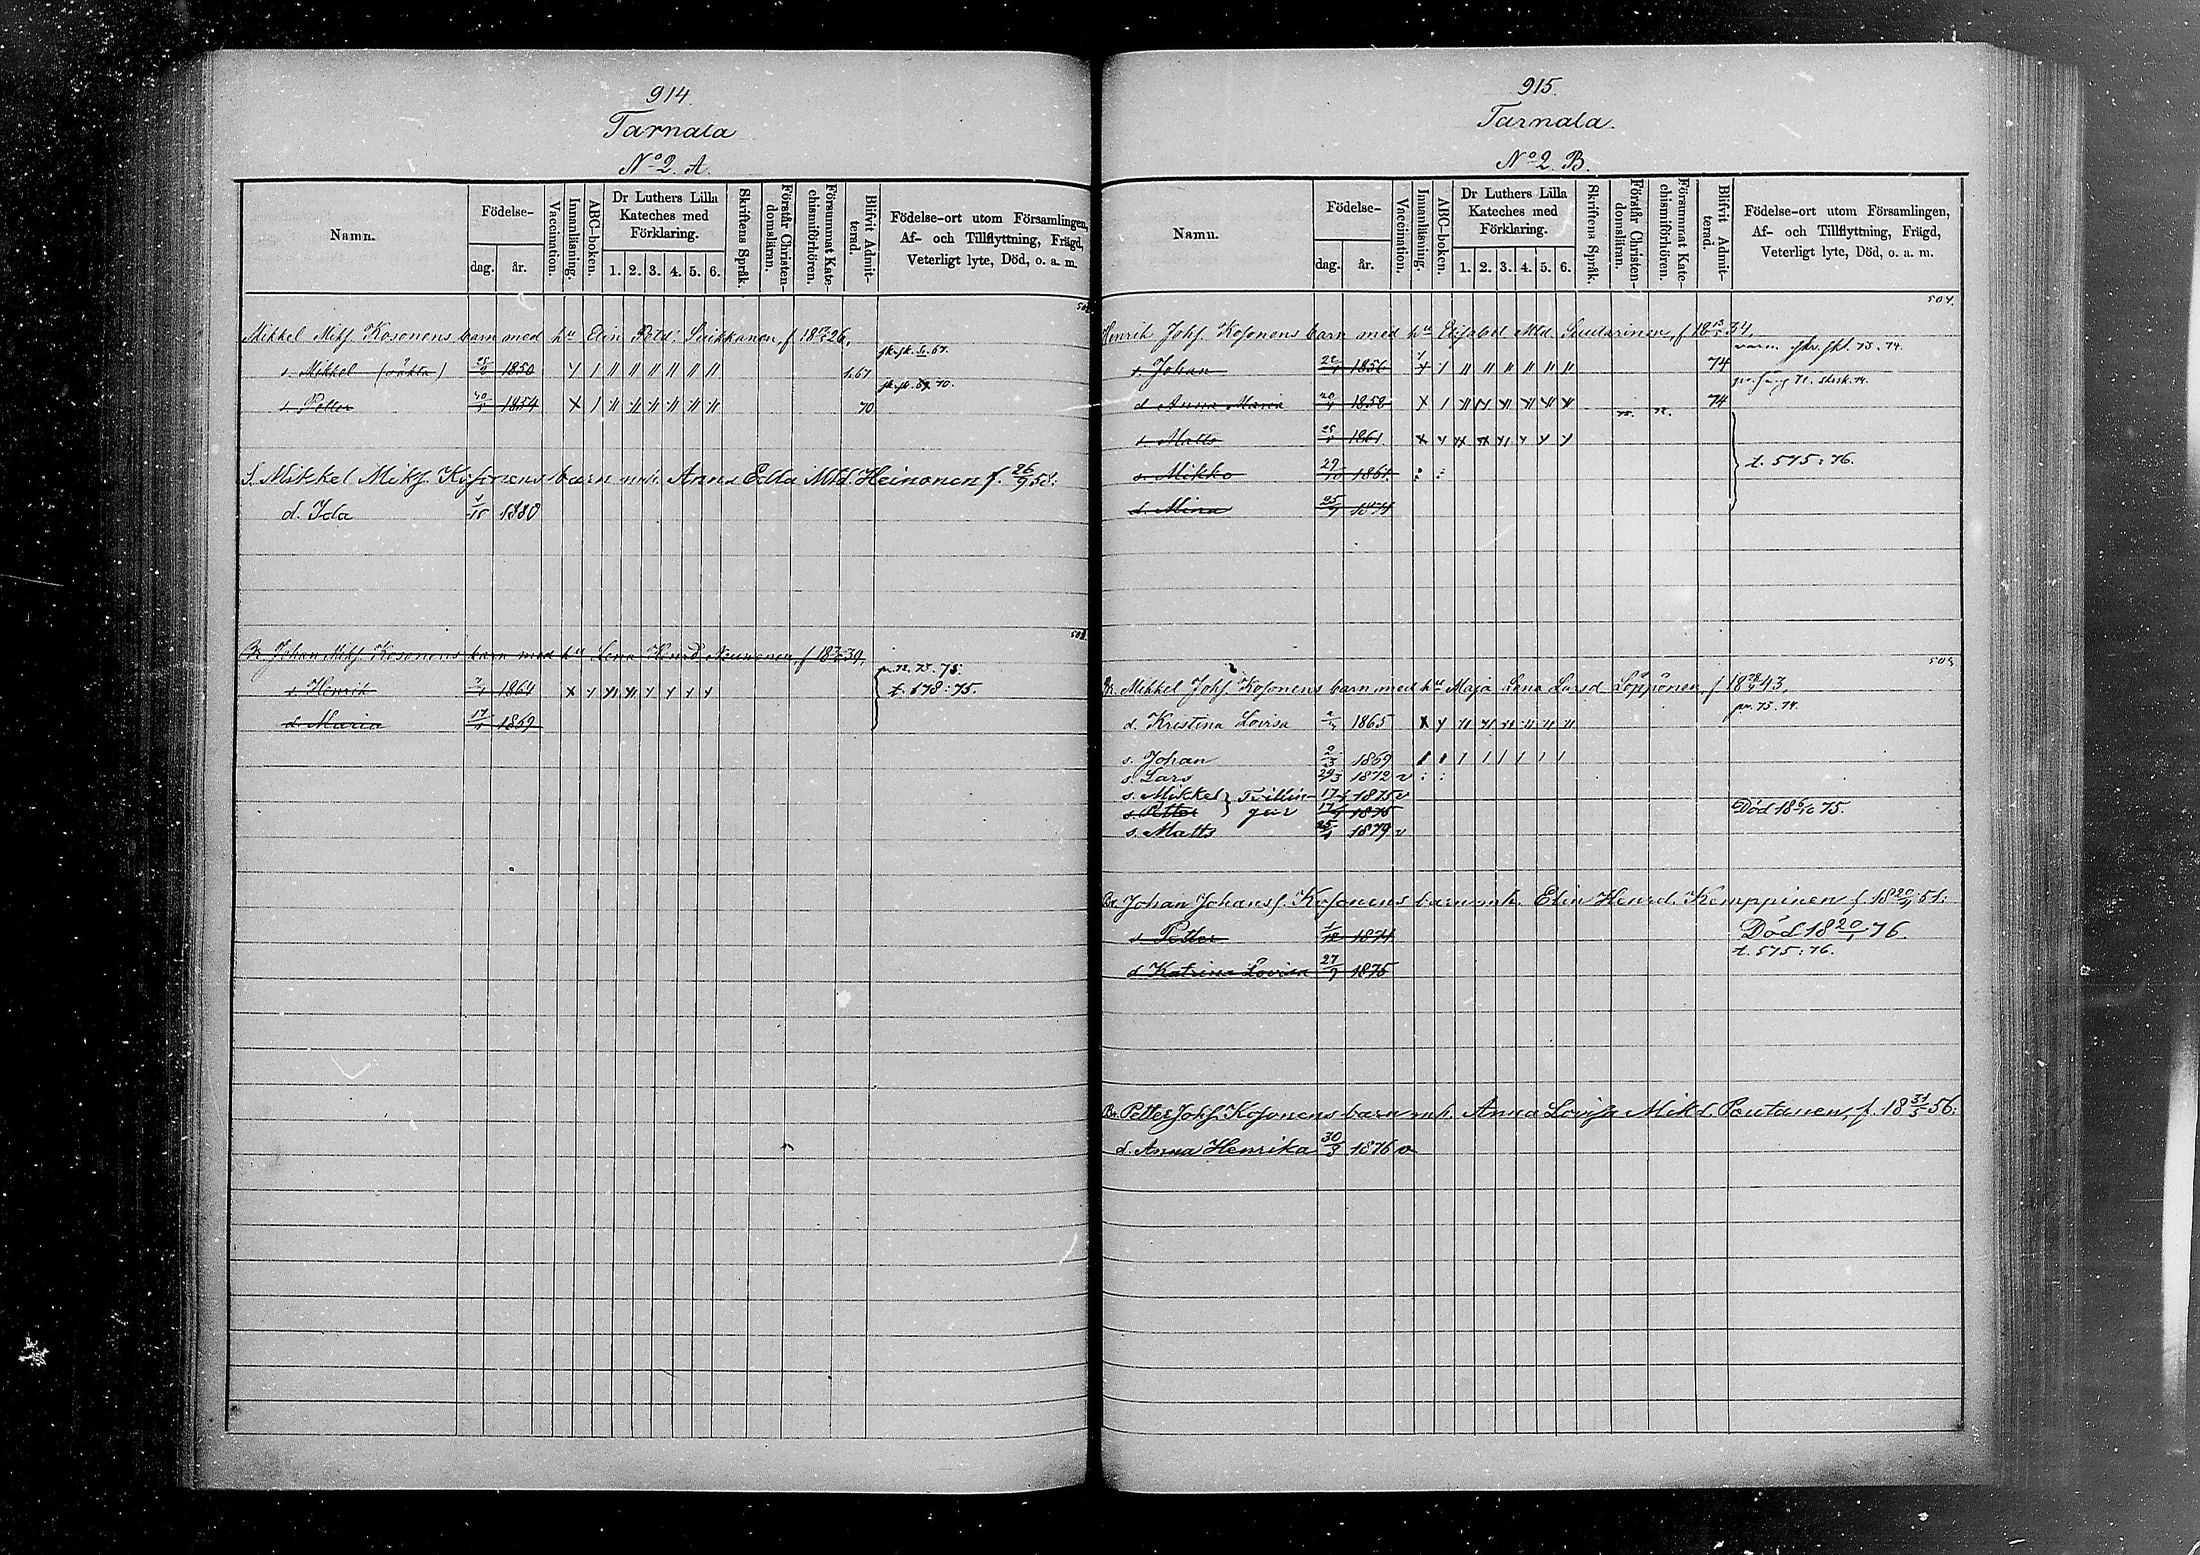 914.
Tarnala
No 2. A.
Namn.
Födelse-
dag. år.
Vaccination.
Innanläsning.
ABC-boken.
Dr Luthers Lilla
Kateches med
Förklaring.
1. 2. 3. 4. 5. 6.
Skriftens Språk.
Förstår Christen-
domsläran.
Försummat Kate-
chismiförhören.
Blifvit Admit-
terad.
Födelse-ort utom Församlingen,
Af- och Tillflyttning, Frägd,
Veterligt lyte, Död, o. a. m.
Mikkel Mikf. Kosonens barn med hu Elin Petd.
s. Mikkel 1850 67
s. Petter 1854 70 70.
S. Mikkel Mikf. Kosonens barn Anna Edla Mtd. Heinonen f. 26/9 58.
d. Ida 1880
Br. Johan Mikf. Kosonens barn med hu Lena Henrd
s. Henrik 1864 t. 578:75.
d. Maria 17 1869
915.
Tarnala.
No 2. B.
Namn.
Födelse-
dag. år.
Vaccination.
Innanläsning.
ABC-boken.
Dr Luthers Lilla
Kateches med
Förklaring.
1. 2. 3. 4. 5. 6.
Skriftens Språk.
Förstår Christen-
domsläran.
Försummat Kate-
chismiförhören.
Blifvit Admit-
terad.
Födelse-ort utom Församlingen,
Af- och Tillflyttning, Frägd,
Veterligt lyte, Död, o. a. m.
504.
Henrik Johf. Kosonens barn med hu Elisabet Mtd. Suutarinen, f. 18 34.
s. Johan 1856 74
d. Anna Maria 1858 74
s. Matts 1861
s. Mikko 29/10 1861. t. 575:76.
d. Mina 1874
Br. Mikkel Johf. Kosonens barn med hu Maja Lena Larsd Löppönen, f. 18 43.
d. Kristina Lovisa 1865
s. Johan 2/3 1869
s. Lars 29/3 1872 v
s. Mikkel } Tvillin- 1875 v
s. Petter } gar 1875 Död 18 75.
s. Matts 1879 v
Br. Johan Johansf. Kosonens barn mh. Elin Henrd. Kemppinen f. 18 51.
s. Petter 1/12 1874 Död 18 20/1 76.
d. Katrina Lovisa 27/9 1875 t. 575:76.
Br. Petter Johf. Kosonens barn mh. Anna Lovisa Mikd. Pontanen, f. 18 31/5 56.
d. Anna Henrika 30/3 1876 v